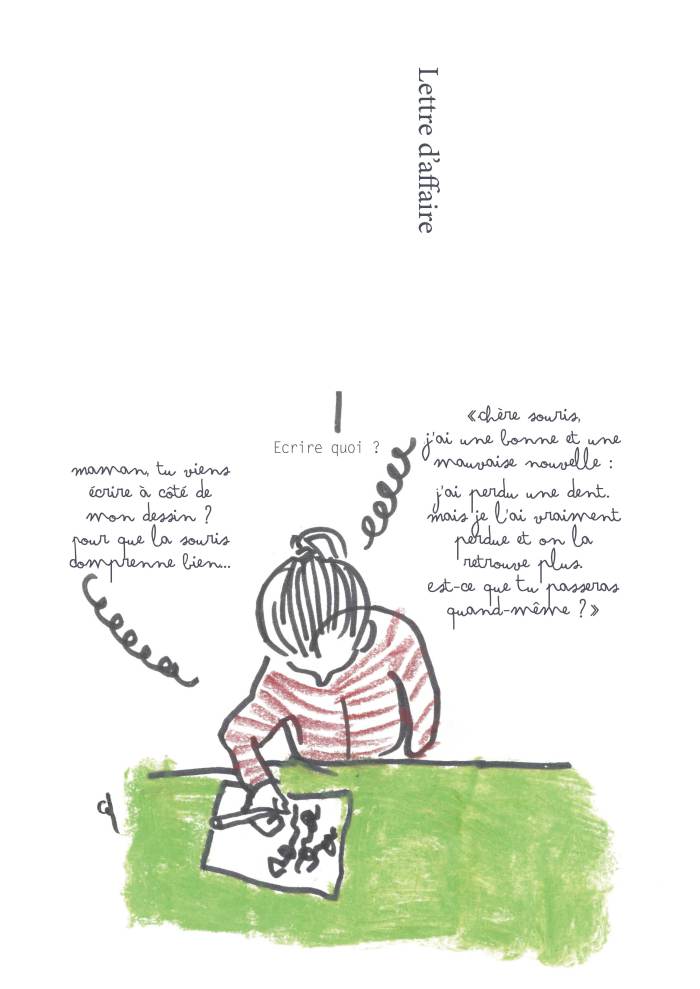 Lettre d'affaire
maman, tu viens
écrire à côté de
mon dessin ?
pour que la souris
comprenne bien...
Ecrire quoi ?
«chère souris,
j'ai une bonne et une
mauvaise nouvelle :
j'ai perdu une dent.
mais je l'ai vraiment
perdue et on la
retrouve plus.
est-ce que tu passeras
quand-même ?»